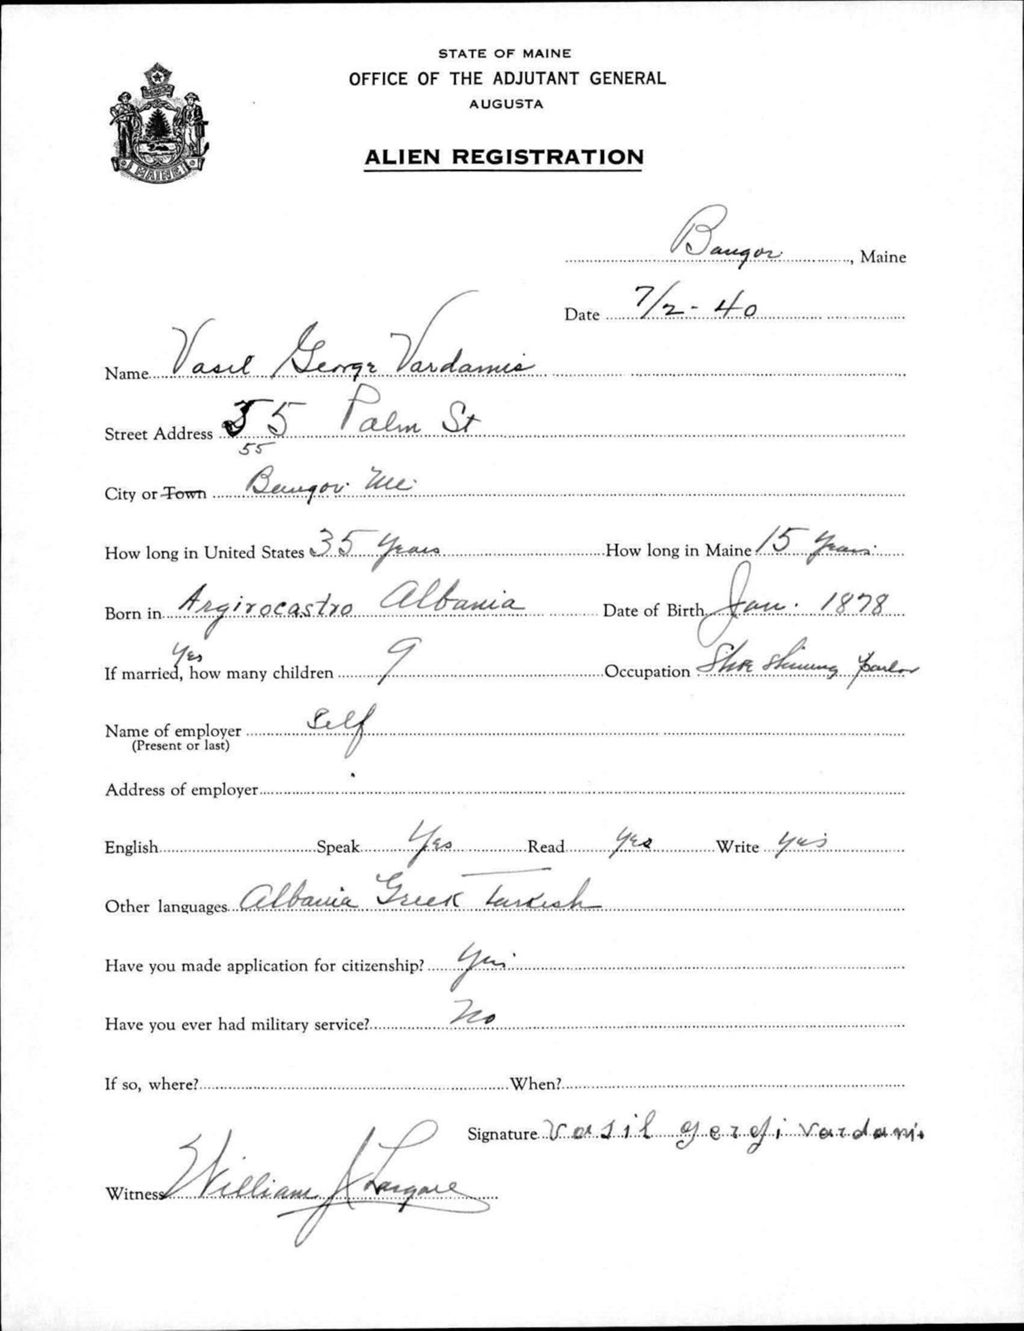 STATE OF MAINE
OFFICE OF THE ADJUTANT GENERAL
AUGUSTA
ALIEN REGISTRATION
MAINE
Bangor, Maine
Date 7/2-40
Name Vasil George Vardamis
Street Address 55 Palm St
55
City or Town Bangor Me.
How long in United States 35 Years How long in Maine 15 Years
Born in Argirocastro Albania Date of Birth Jan. 1878
Yes
If married, how many children 9 Occupation Shoe Shining Parlor
Name of employer Self
(Present or last)
Address of employer
English Speak Yes Read Yes Write Yes
Other languages Albania Greek Turkish
Have you made application for citizenship? Yes
Have you ever had military service? No
If so, where? When?
Signature Vasil gergi Vardami
Witness William J